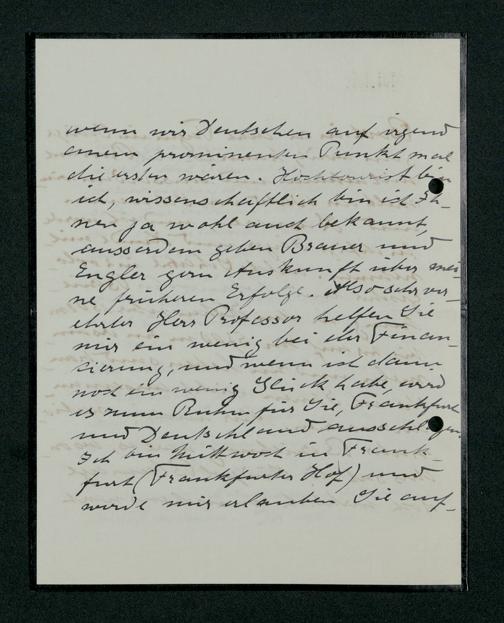 wenn wir Deutschen auf irgend
einem prominenten Punkt mal
die ersten waren. Hochtourist bin
ich, wissenschaftlich bin ich Ih-
nen ja wohl auch bekannt,
ausserdem geben Brauer und
Engler gern Auskunft über mei-
ne früheren Erfolge. Also sehr ver-
ehrter Herr Professor helfen Sie
mir ein wenig bei der Finan-
cierung, und wenn ich dann
noch ein wenig Glück habe, wird
es zum Ruhm für Sie, Frankfurt
und Deutschland ausschlagen.
Ich bin Mittwoch in Frank-
furt (Frankfurter Hof) und
werde mir erlauben Sie auf-